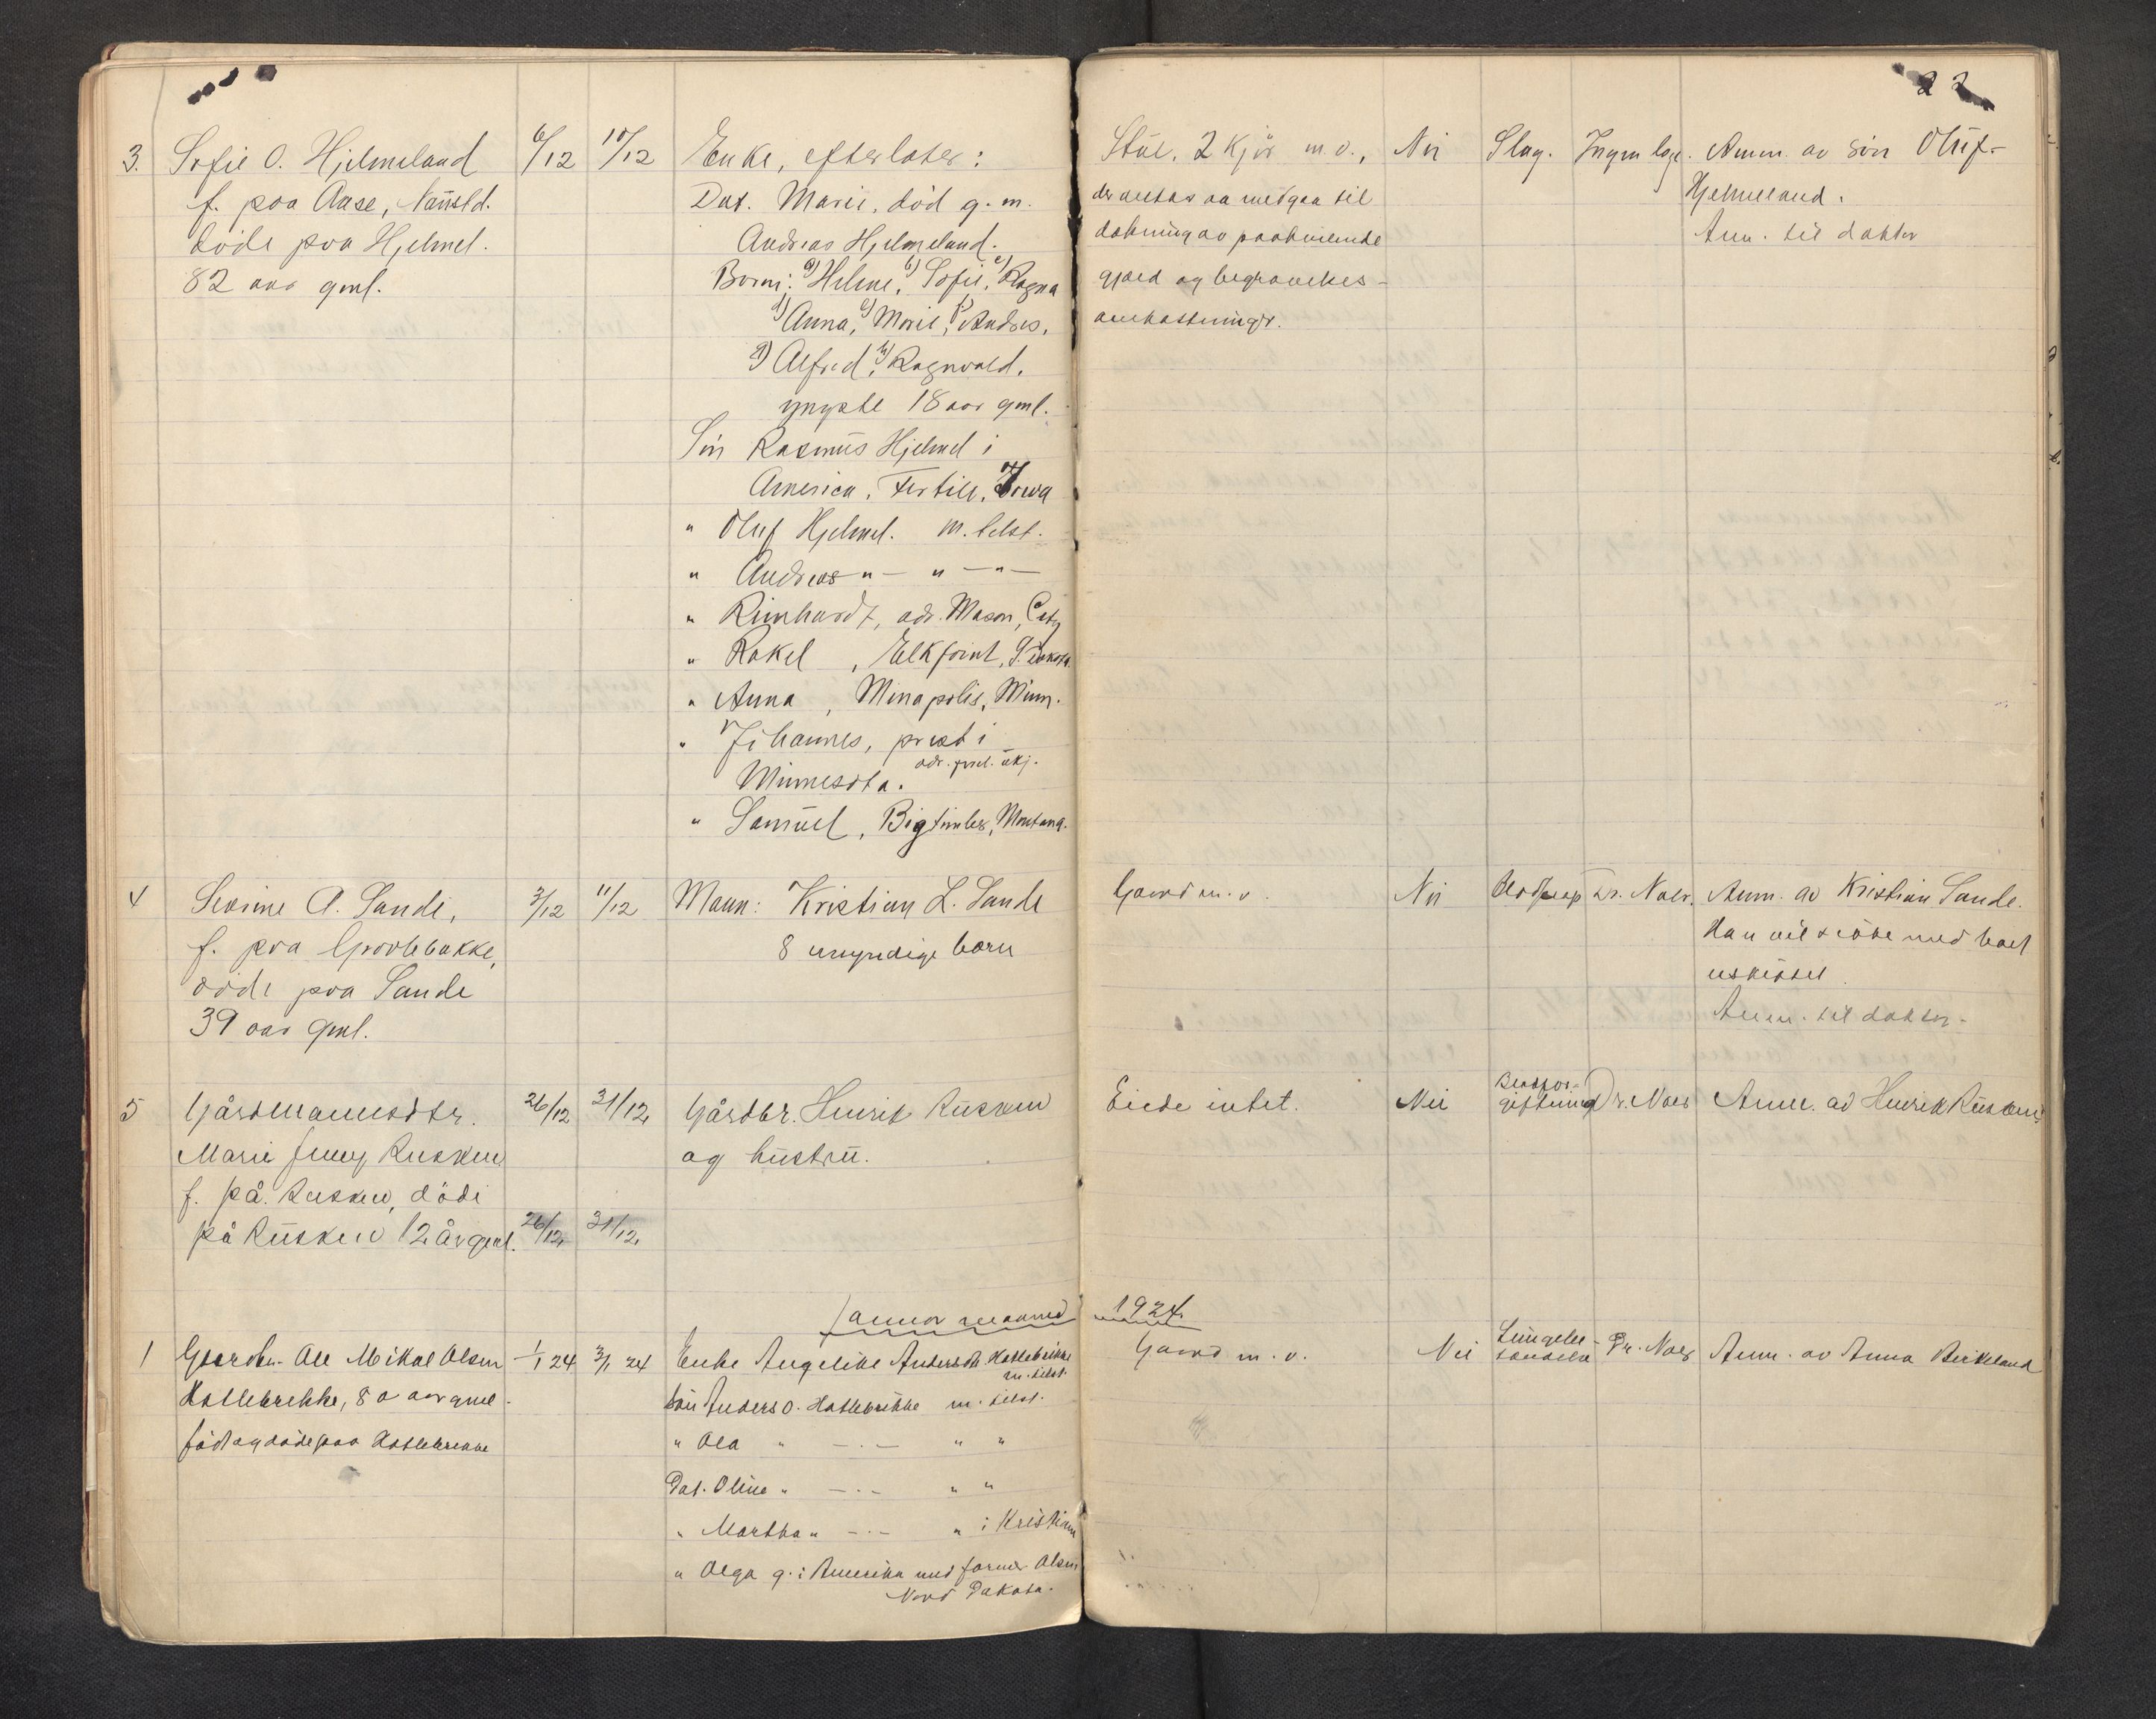 22
3. Sofie O. Hjelmeland 6/12 10/12 Enke, efterlater: Stue, 2 kjör m.v., Nei Slag. Ingen læge. Anm. av sön Oluf
f. paa Aase, Naustd. Dat. Marie, död g. m. der antas aa medgaa til Hjelmeland.
döde paa Hjelmel. Andreas Hjelmeland. dækning av paahvilende Anm. til doktor
82 aar gml. Born: a) Helene, b) Sofie, c) Ragna gjæld og begravelses-
d) Anna, e) Marie, f) Andres, omkostninger.
g) Alfred, h) Ragnvald,
yngste 18 aar gml.
Sön Rasmus Hjelmel i
America, Fertile, Iowa
" Oluf Hjelmel. m. tilst.
" Andreas " — " — " —
" Reinhardt, adr. Mason, City
" Rakel, Elkpoint, S. Dakota.
" Anna, Minapolis, Minn.
" Johannes, prest i
Minnesota. adr. ukj.
" Samuel, Bigtimber, Montana.
4 Severine A. Sande, 3/12 11/12 Mann: Kristian L. Sande Gaard m.v. Nei Dr. Naer. Anm. av Kristian Sande.
f. paa döde paa Sande 8 umyndige born Han vil sidde med boet
39 aar gml. uskiftet.
Anm. til doktor.
5 Gårdmannsdtr. 26/12 31/12 Gårdbr. Henrik Rusken Eiede intet. Nei Blodforgiftning Dr. Naer Anm. av Henrik Rusken.
Marie Jenny Rusken og hustru.
f. på Rusken, döde
på Rusken 12 år gml. 26/12 31/12
Januar maaned 1924.
1 Gaardbr. Ole Mikal Olsen 1/1 24 3/1 24 Enke Angelike Andersdtr. Hatlebrekke m. tilst. Gaard m.v. Nei Lungebetændelse Dr. Naer Anm. av Anna Birkeland
Hatlebrekke, 80 aar gml. Sön Anders O. Hatlebrekke m. tilst.
föd og döde paa Hatlebrekke " Ola " —.— " "
Dat. Oline " —.— " "
" Martha " —.— " i Kristiania
" Olga g. i Amerika med farmer Olsen
Nord Dakota.